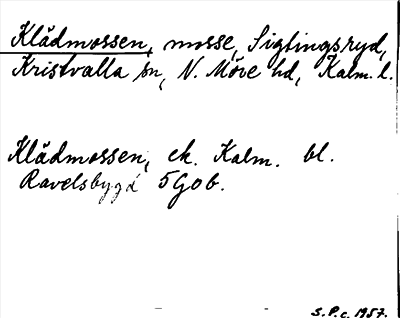 Klådmossen, mosse, Siglingsryd,
Kristvalla sn, N. Möre hd, Kalm. l.
Klådmossen, ek. Kalm. bl.
Ravelsbygd 5G0b.
S.P.c. 1957.